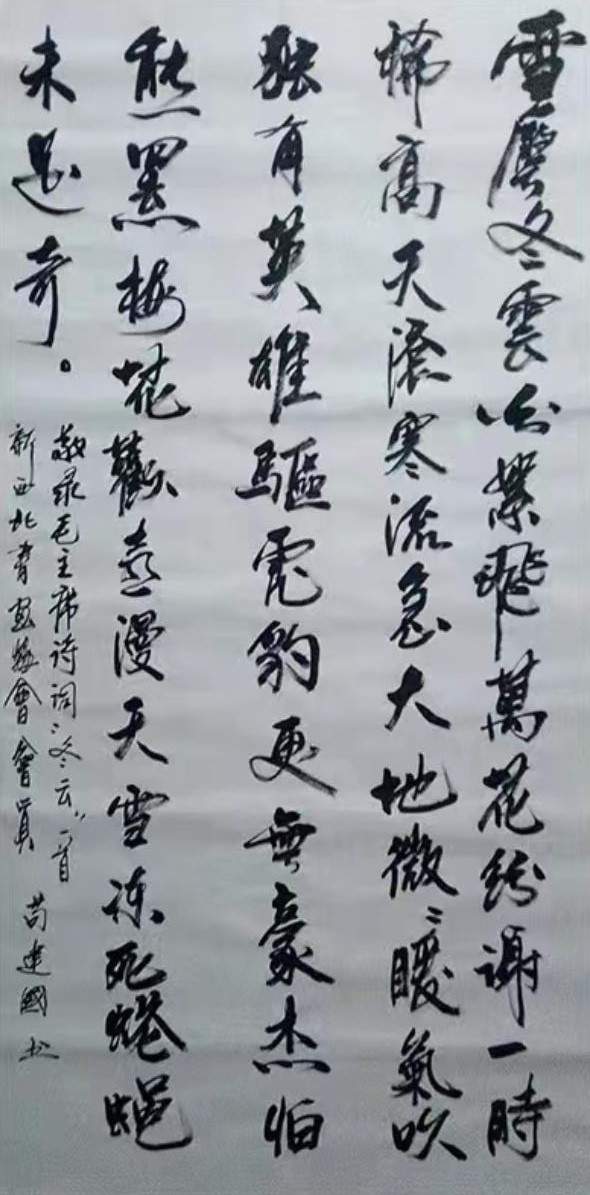 雪壓冬雲白絮飛萬花紛謝一時
稀高天滾寒流急大地微〻暖氣吹
獨有英雄驅虎豹更無豪杰怕
熊羆梅花歡喜漫天雪凍死蒼蠅
未足奇。
敬录毛主席诗词“冬云”一首
新西北書画協會會員 苟建國书